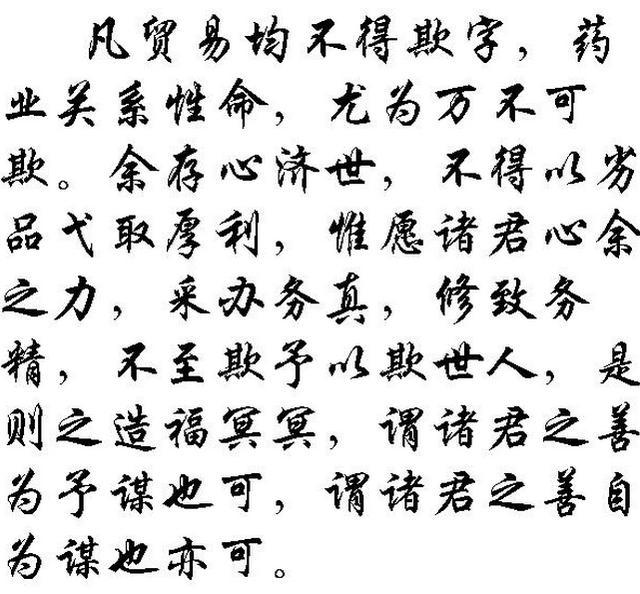 凡贸易均不得欺字，药
业关系性命，尤为万不可
欺。余存心济世，不得以劣
品弋取厚利，惟愿诸君心余
之力，采办务真，修致务
精，不至欺予以欺世人，是
则之造福冥冥，谓诸君之善
为予谋也可，谓诸君之善自
为谋也亦可。